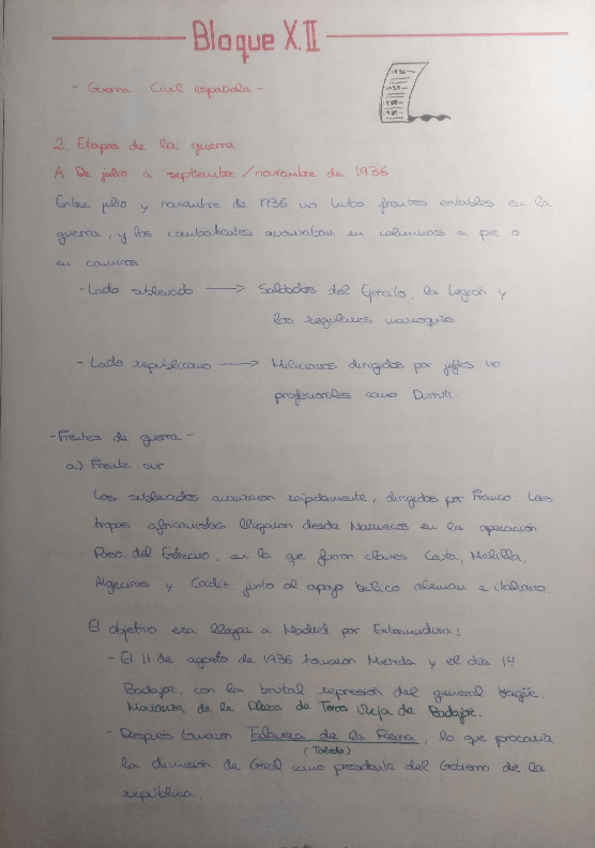 Bloque X.II
- Guerra Civil española -
1936
1937
2. Etapas de la guerra
A. De julio a septiembre/noviembre de 1936.
Entre julio y noviembre de 1936 no hubo frentes estables en la
guerra, y los combatientes avanzaban en columnas a pie o
en camiones
- Lado sublevado → Soldados del Ejército, la Legión y
los regulares marroquíes.
- Lado republicano → Milicianos dirigidos por jefes no
profesionales como Durruti.
- Frentes de guerra -
a) Frente sur
Los sublevados avanzaron rápidamente, dirigidos por Franco. Las
tropas africanistas llegaron desde Marruecos en la operación
Paso del Estrecho, en la que fueron claves Ceuta, Melilla,
Algeciras y Cádiz junto al apoyo bélico alemán e italiano.
El objetivo era llegar a Madrid por Extremadura:
- El 11 de agosto de 1936 tomaron Mérida y el día 14
Badajoz, con la brutal represión del general Yagüe.
Matanza de la Plaza de Toros Vieja de Badajoz.
- Después tomaron Talavera de la Reina, lo que procaría
(Toledo)
la dimisión de Giral como presidente del Gobierno de la
república.